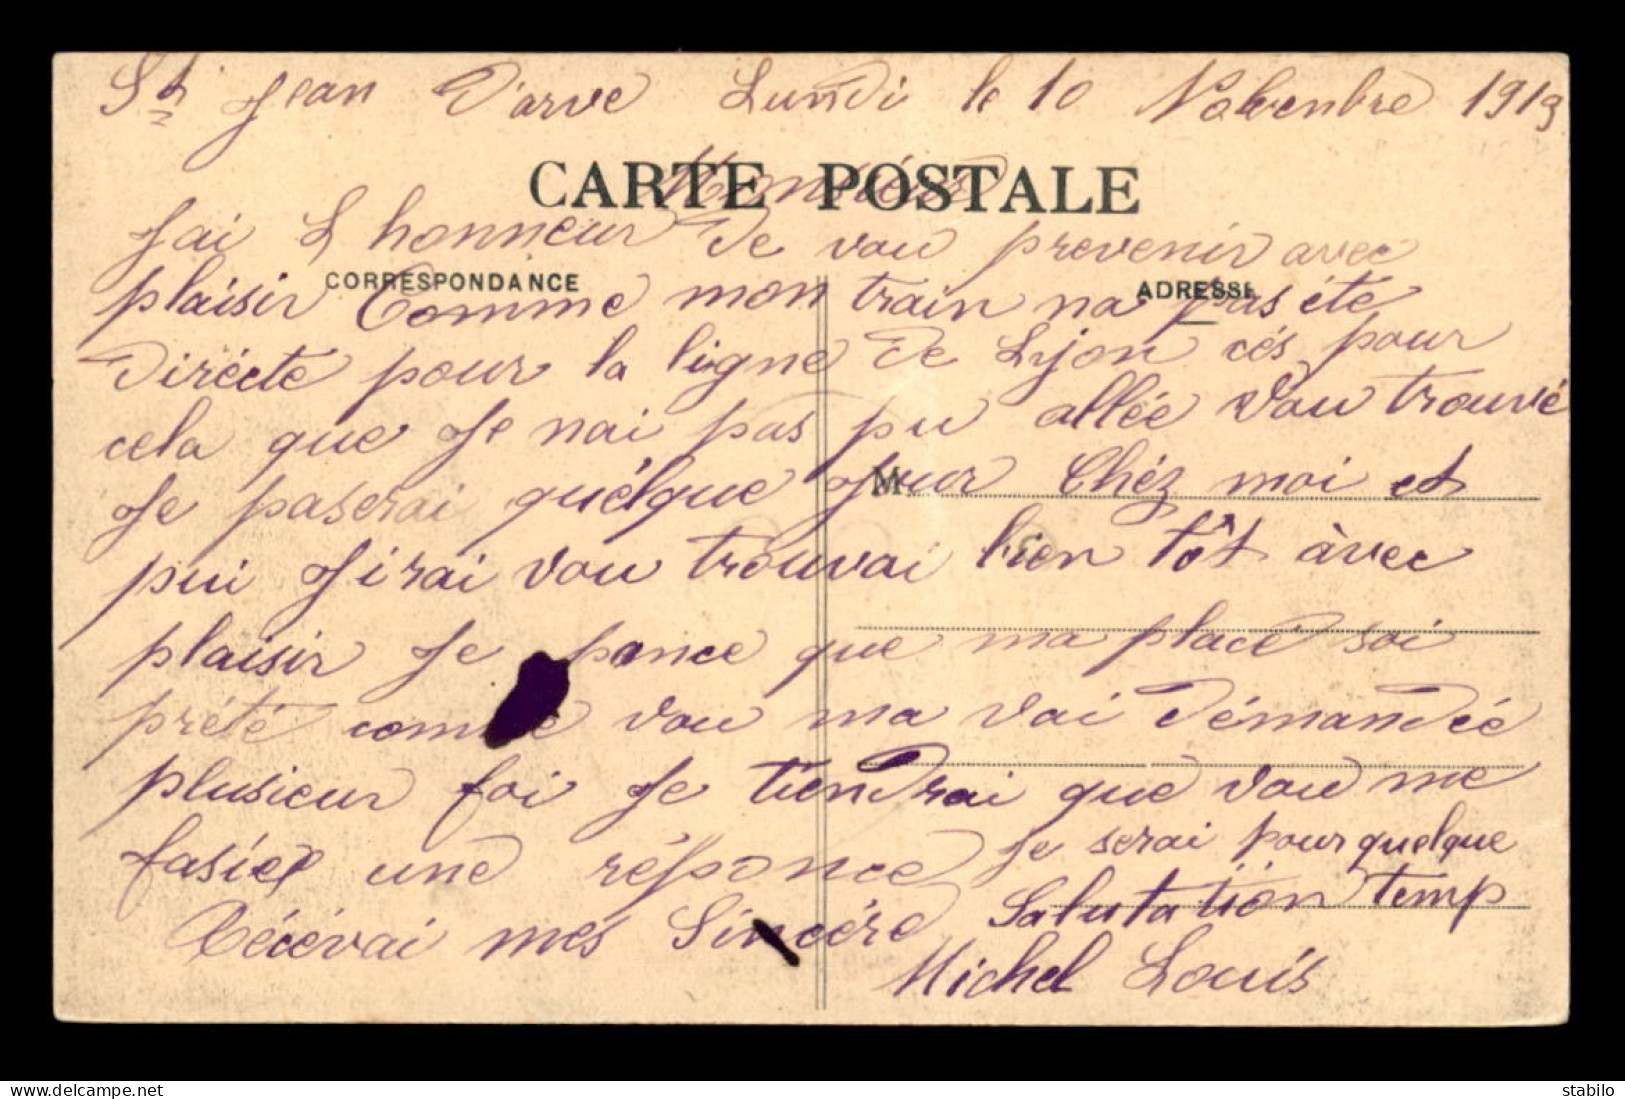 St Jean D'arve Lundi le 10 Novenbre 1913
CARTE POSTALE
Monsieur
Jai L honneur De vou prevenir avec
CORRESPONDANCE
ADRESSE
plaisir Comme mon train na pas été
Dirécte pour la ligne de Lyon cés pour
cela que Je nai pas pu allée Vou trouvé
Je paserai quélque Jour Chéz moi et
M
pui J irai vou trouvai bien tôt àvec
plaisir Je pance que ma placé soi
prété comme vou ma vai Démandée
plusieur foi Je tiendrai que vou me
fasiez une réponce Je serai pour quelque
Récévai més Sincére Salutation temp
Michel Louis
stabilo